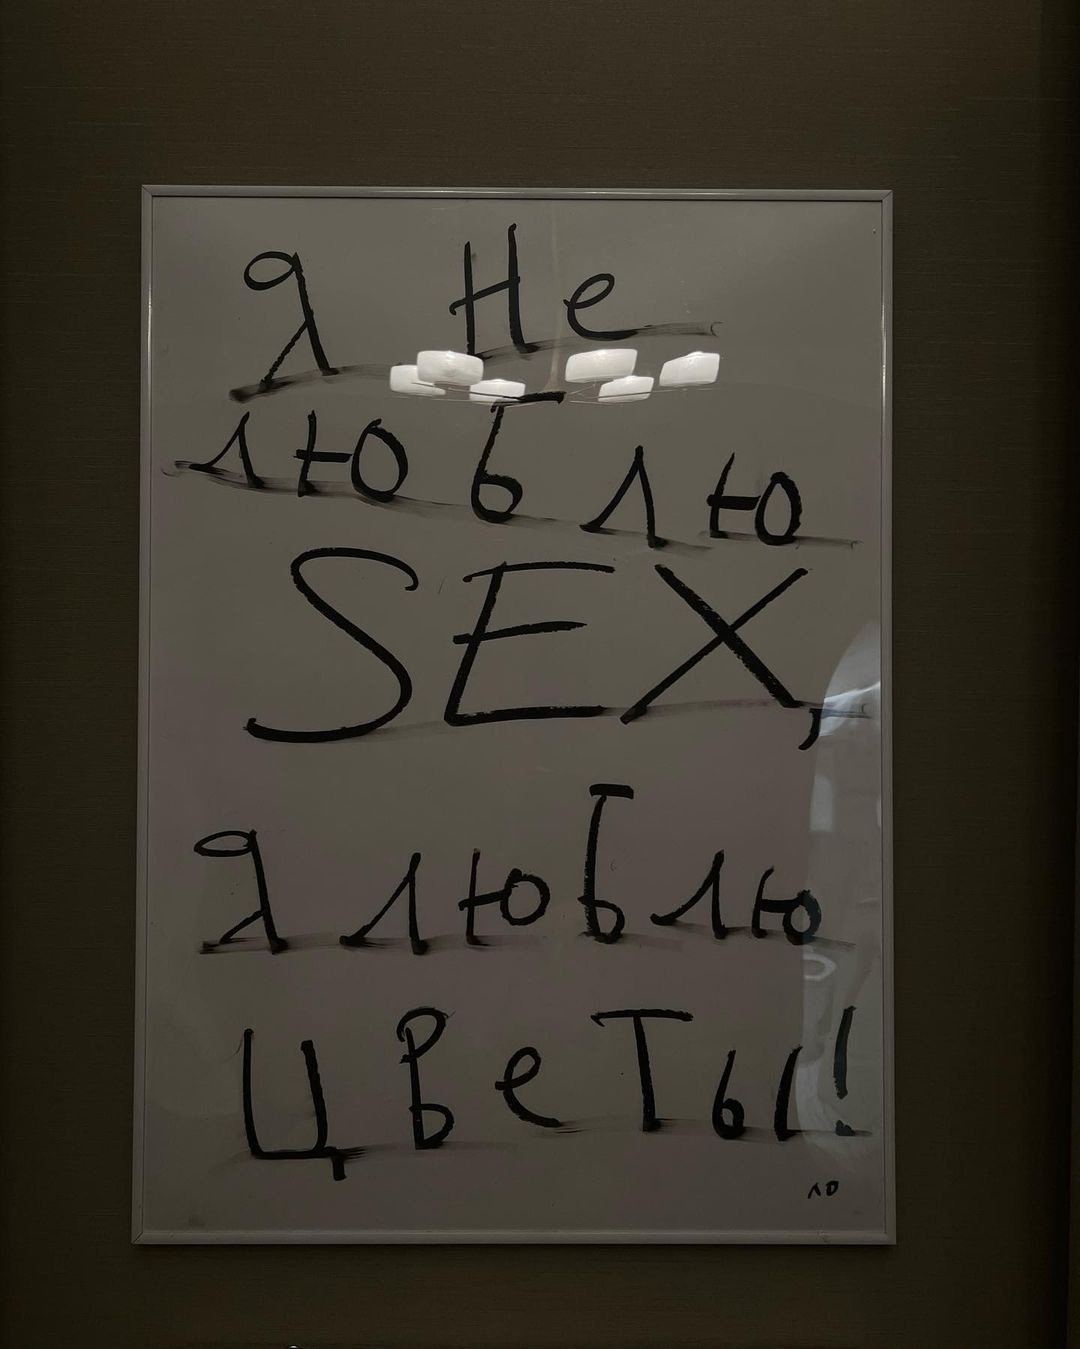 Я Не
люблю
SEX,
Я люблю
Цветы!
ЛО